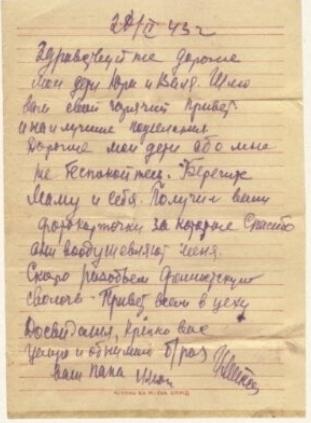 22/IV 43 г
Здравствуйте дорогие
мои дети Юра и Ваня. Шлю
вам свой горячий привет
и наилучшие пожелания
Дорогие мои дети обо мне
не беспокойтесь. Берегите
Маму и себя. Получил ваши
фотокарточки за которые спасибо
они воодушевляют меня.
Скоро разобьем фашистскую
сволочь - Привет всем в цеху
Досвидания, крепко вас
целую и обнимаю б/раз
ваш папа